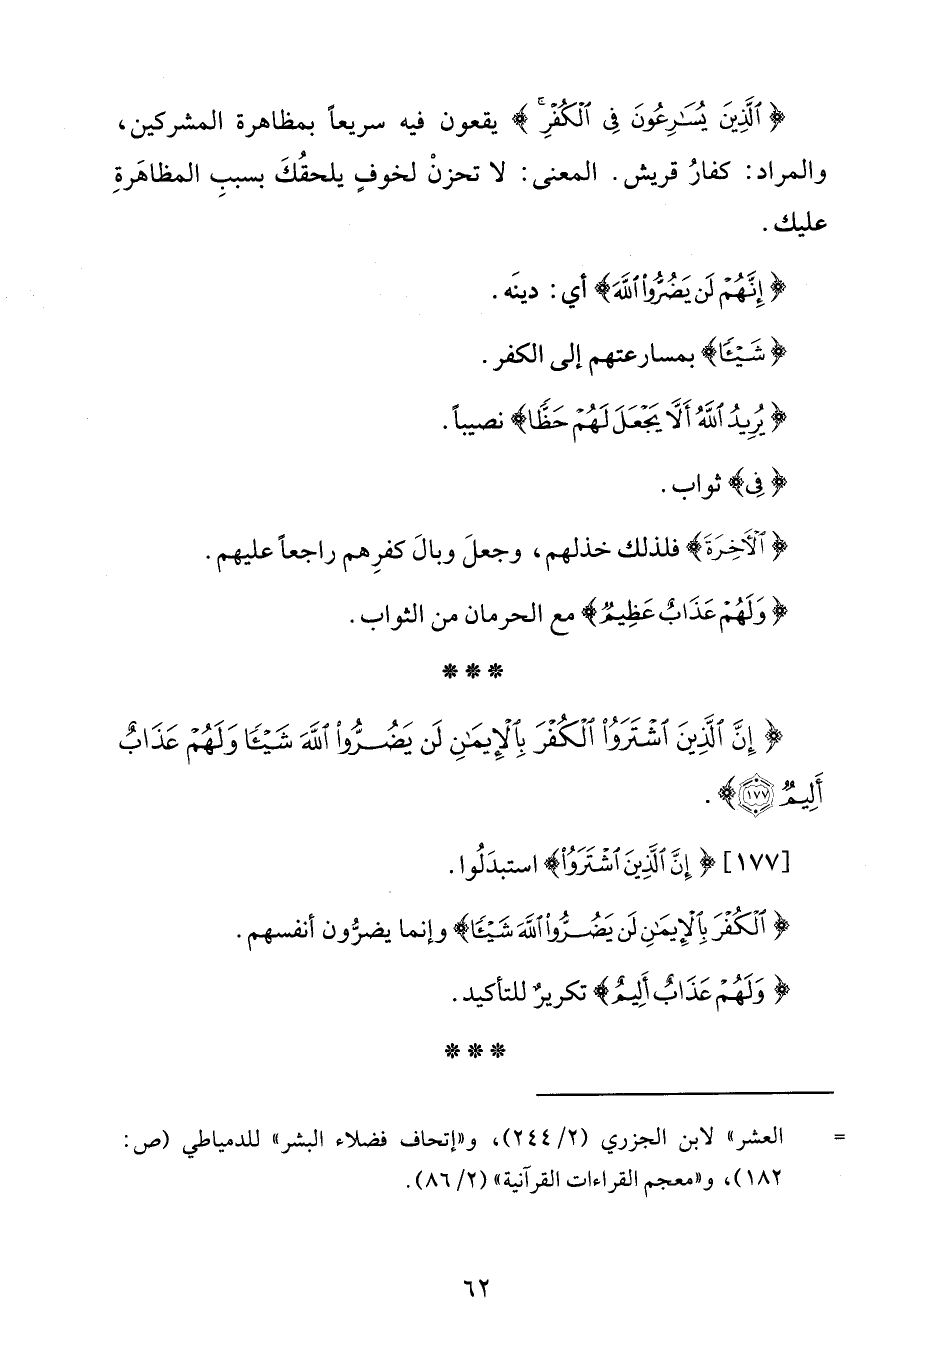 ﴿ٱلَّذِينَ يُسَـٰرِعُونَ فِى ٱلْكُفْرِ ۚ﴾ يقعون فيه سريعاً بمظاهرة المشركين،
والمراد: كفارُ قريش. المعنى: لا تحزنْ لخوفٍ يلحقُكَ بسببِ المظاهَرةِ
عليك.
﴿إِنَّهُمْ لَن يَضُرُّوا۟ ٱللَّهَ﴾ أي: دينَه.
﴿شَيْـًٔا﴾ بمسارعتهم إلى الكفر.
﴿يُرِيدُ ٱللَّهُ أَلَّا يَجْعَلَ لَهُمْ حَظًّا﴾ نصيباً.
﴿فِى﴾ ثواب.
﴿ٱلْأَخِرَةِ﴾ فلذلك خذلهم، وجعلَ وبالَ كفرِهم راجعاً عليهم.
﴿وَلَهُمْ عَذَابٌ عَظِيمٌ﴾ مع الحرمان من الثواب.
***
﴿إِنَّ ٱلَّذِينَ ٱشْتَرَوُا۟ ٱلْكُفْرَ بِٱلْإِيمَـٰنِ لَن يَضُرُّوا۟ ٱللَّهَ شَيْـًٔا وَلَهُمْ عَذَابٌ
أَلِيمٌ ١٧٧﴾.
[١٧٧] ﴿إِنَّ ٱلَّذِينَ ٱشْتَرَوُا۟﴾ استبدَلُوا.
﴿ٱلْكُفْرَ بِٱلْإِيمَـٰنِ لَن يَضُرُّوا۟ ٱللَّهَ شَيْـًٔا﴾ وإنما يضرُّون أنفسهم.
﴿وَلَهُمْ عَذَابٌ أَلِيمٌ﴾ تكريرٌ للتأكيد.
***
= العشر» لابن الجزري (٢/ ٢٤٤)، و«إتحاف فضلاء البشر» للدمياطي (ص:
١٨٢)، و«معجم القراءات القرآنية» (٢/ ٨٦).
٦٢